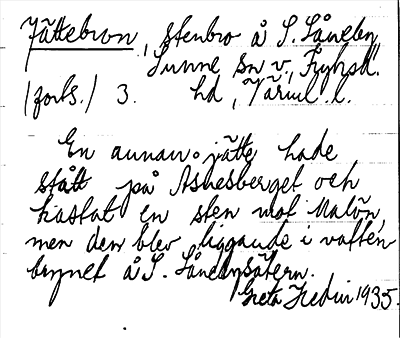 Jättebron, stenbro å S. Låneby
Sunne sn v., Fryksd.
(forts.) 3. hd, Värml. l.
En annan jätte hade
stått på Asnesberget och
kastat en sten mot Malön,
men den blev liggande i vatten
brynet å S. Lånebysätern.
Greta Hedin 1935.